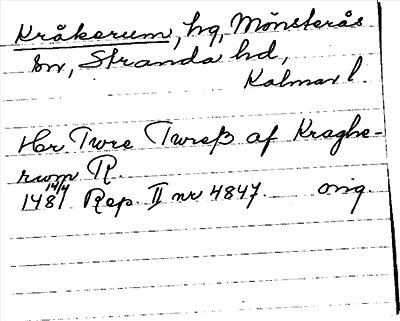 Kråkerum, hg, Mönsterås
sn, Stranda hd,
Kalmar l.
Hr. Twre Twreß af Kraghe-
rum R.
148 14/4 1 Rep. II nr 4847. orig.